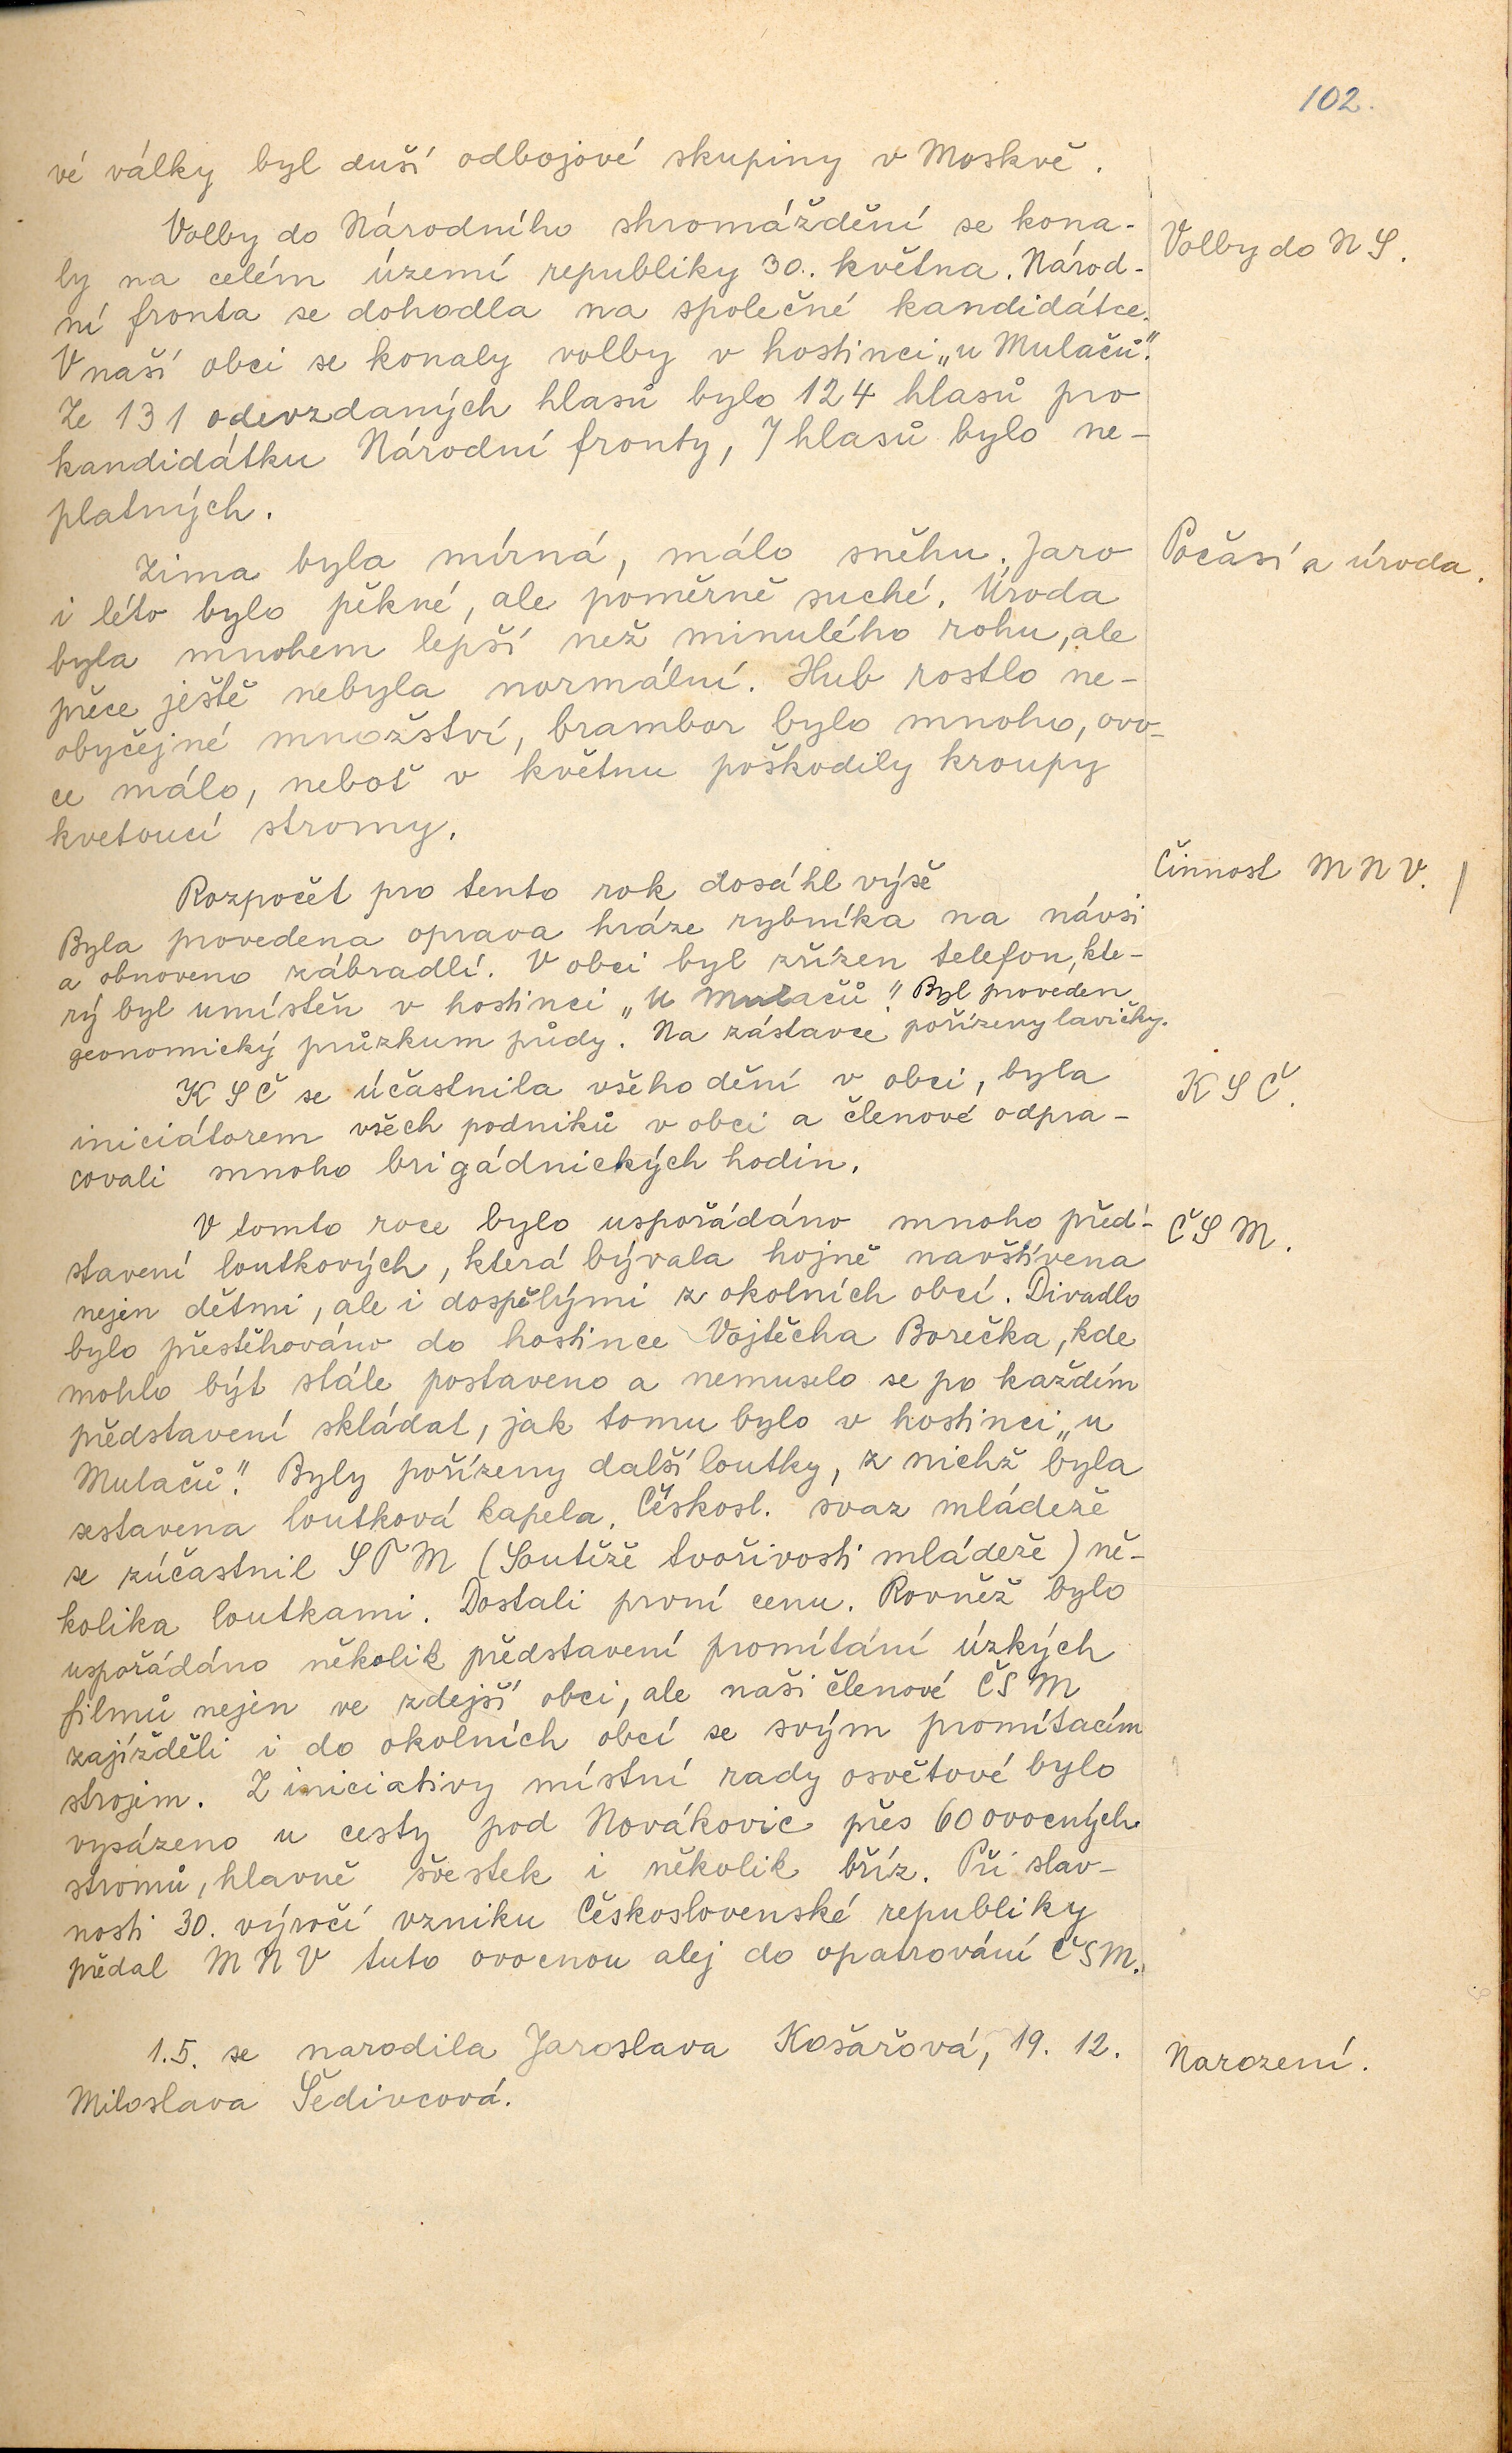 102.
vé války byl duší odbojové skupiny v Moskvě.
Volby do Národního shromáždění se kona-
Volby do N S.
ly na celém území republiky 30. května. Národ-
ní fronta se dohodla na společné kandidátce.
V naší obci se konaly volby v hostinci „u Mulačů".
Ze 131 odevzdaných hlasů bylo 124 hlasů pro
kandidátku Národní fronty, 7 hlasů bylo ne-
platných.
Zima byla mírná, málo sněhu. Jaro
Počasí a úroda.
i léto bylo pěkné, ale poměrně suché. Úroda
byla mnohem lepší než minulého rohu, ale
přece ještě nebyla normální. Hub rostlo ne-
obyčejné množství, brambor bylo mnoho, ovo-
ce málo, neboť v květnu poškodily kroupy
kvetoucí stromy.
Činnost M N V.
Rozpočet pro tento rok dosáhl výše
Byla provedena oprava hráze rybníka na návsi
a obnoveno zábradlí. V obci byl zřízen telefon, kte-
rý byl umístěn v hostinci „U Mulačů" Byl proveden
geonomický průzkum půdy. Na zástavce pořízeny lavičky.
K S Č se účastnila všeho dění v obci, byla
K S Č.
iniciátorem všech podniků v obci a členové odpra-
covali mnoho brigádnických hodin.
V tomto roce bylo uspořádáno mnoho před-
Č S M.
stavení loutkových, která bývala hojně navštívena
nejen dětmi, ale i dospělými z okolních obcí. Divadlo
bylo přestěhováno do hostince Vojtěcha Borečka, kde
mohlo být stále postaveno a nemuselo se po každém
představení skládat, jak tomu bylo v hostinci „u
Mulačů." Byly pořízeny další loutky, z nichž byla
sestavena loutková kapela. Českosl. svaz mládeže
se zúčastnil S T M (Soutěže tvořivosti mládeže) ně-
kolika loutkami. Dostali první cenu. Rovněž bylo
uspořádáno několik představení promítání úzkých
filmů nejen ve zdejší obci, ale naši členové Č S M
zajížděli i do okolních obcí se svým promítacím
strojem. Z iniciativy místní rady osvětové bylo
vysázeno u cesty pod Novákovic přes 60 ovocných
stromů, hlavně švestek i několik bříz. Při slav-
nosti 30. výročí vzniku Československé republiky
předal M N V tuto ovocnou alej do opatrování Č S M.
1.5. se narodila Jaroslava Košařová, 19. 12.
Narození.
Miloslava Šedivcová.